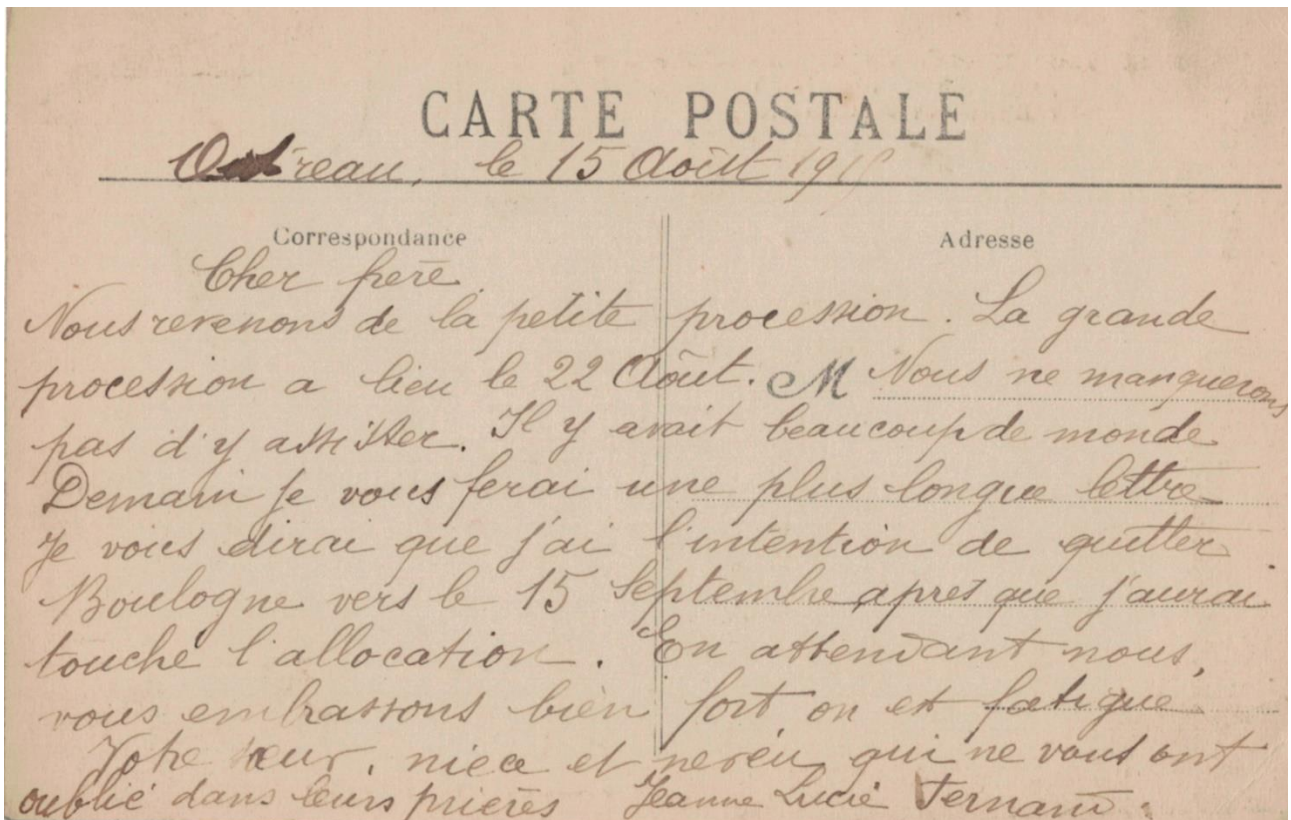 CARTE POSTALE
le 15 Août 191
Correspondance
Adresse
Cher frere
Nous revenons de la petite procession. La grande
procession a lieu le 22 Août. M Nous ne manquerons
pas d'y assister. Il y avait beaucoup de monde
Demain je vous ferai une plus longue lettre
Je vous dirai que j'ai l'intention de quitter
Boulogne vers le 15 Septembre apres que j'aurai
touché l'allocation. En attendant nous,
vous embrassons bien fort on est fatigué
Votre sœur, niece et neveu qui ne vous ont
oublié dans leurs prières Jeanne Lucie Fernand